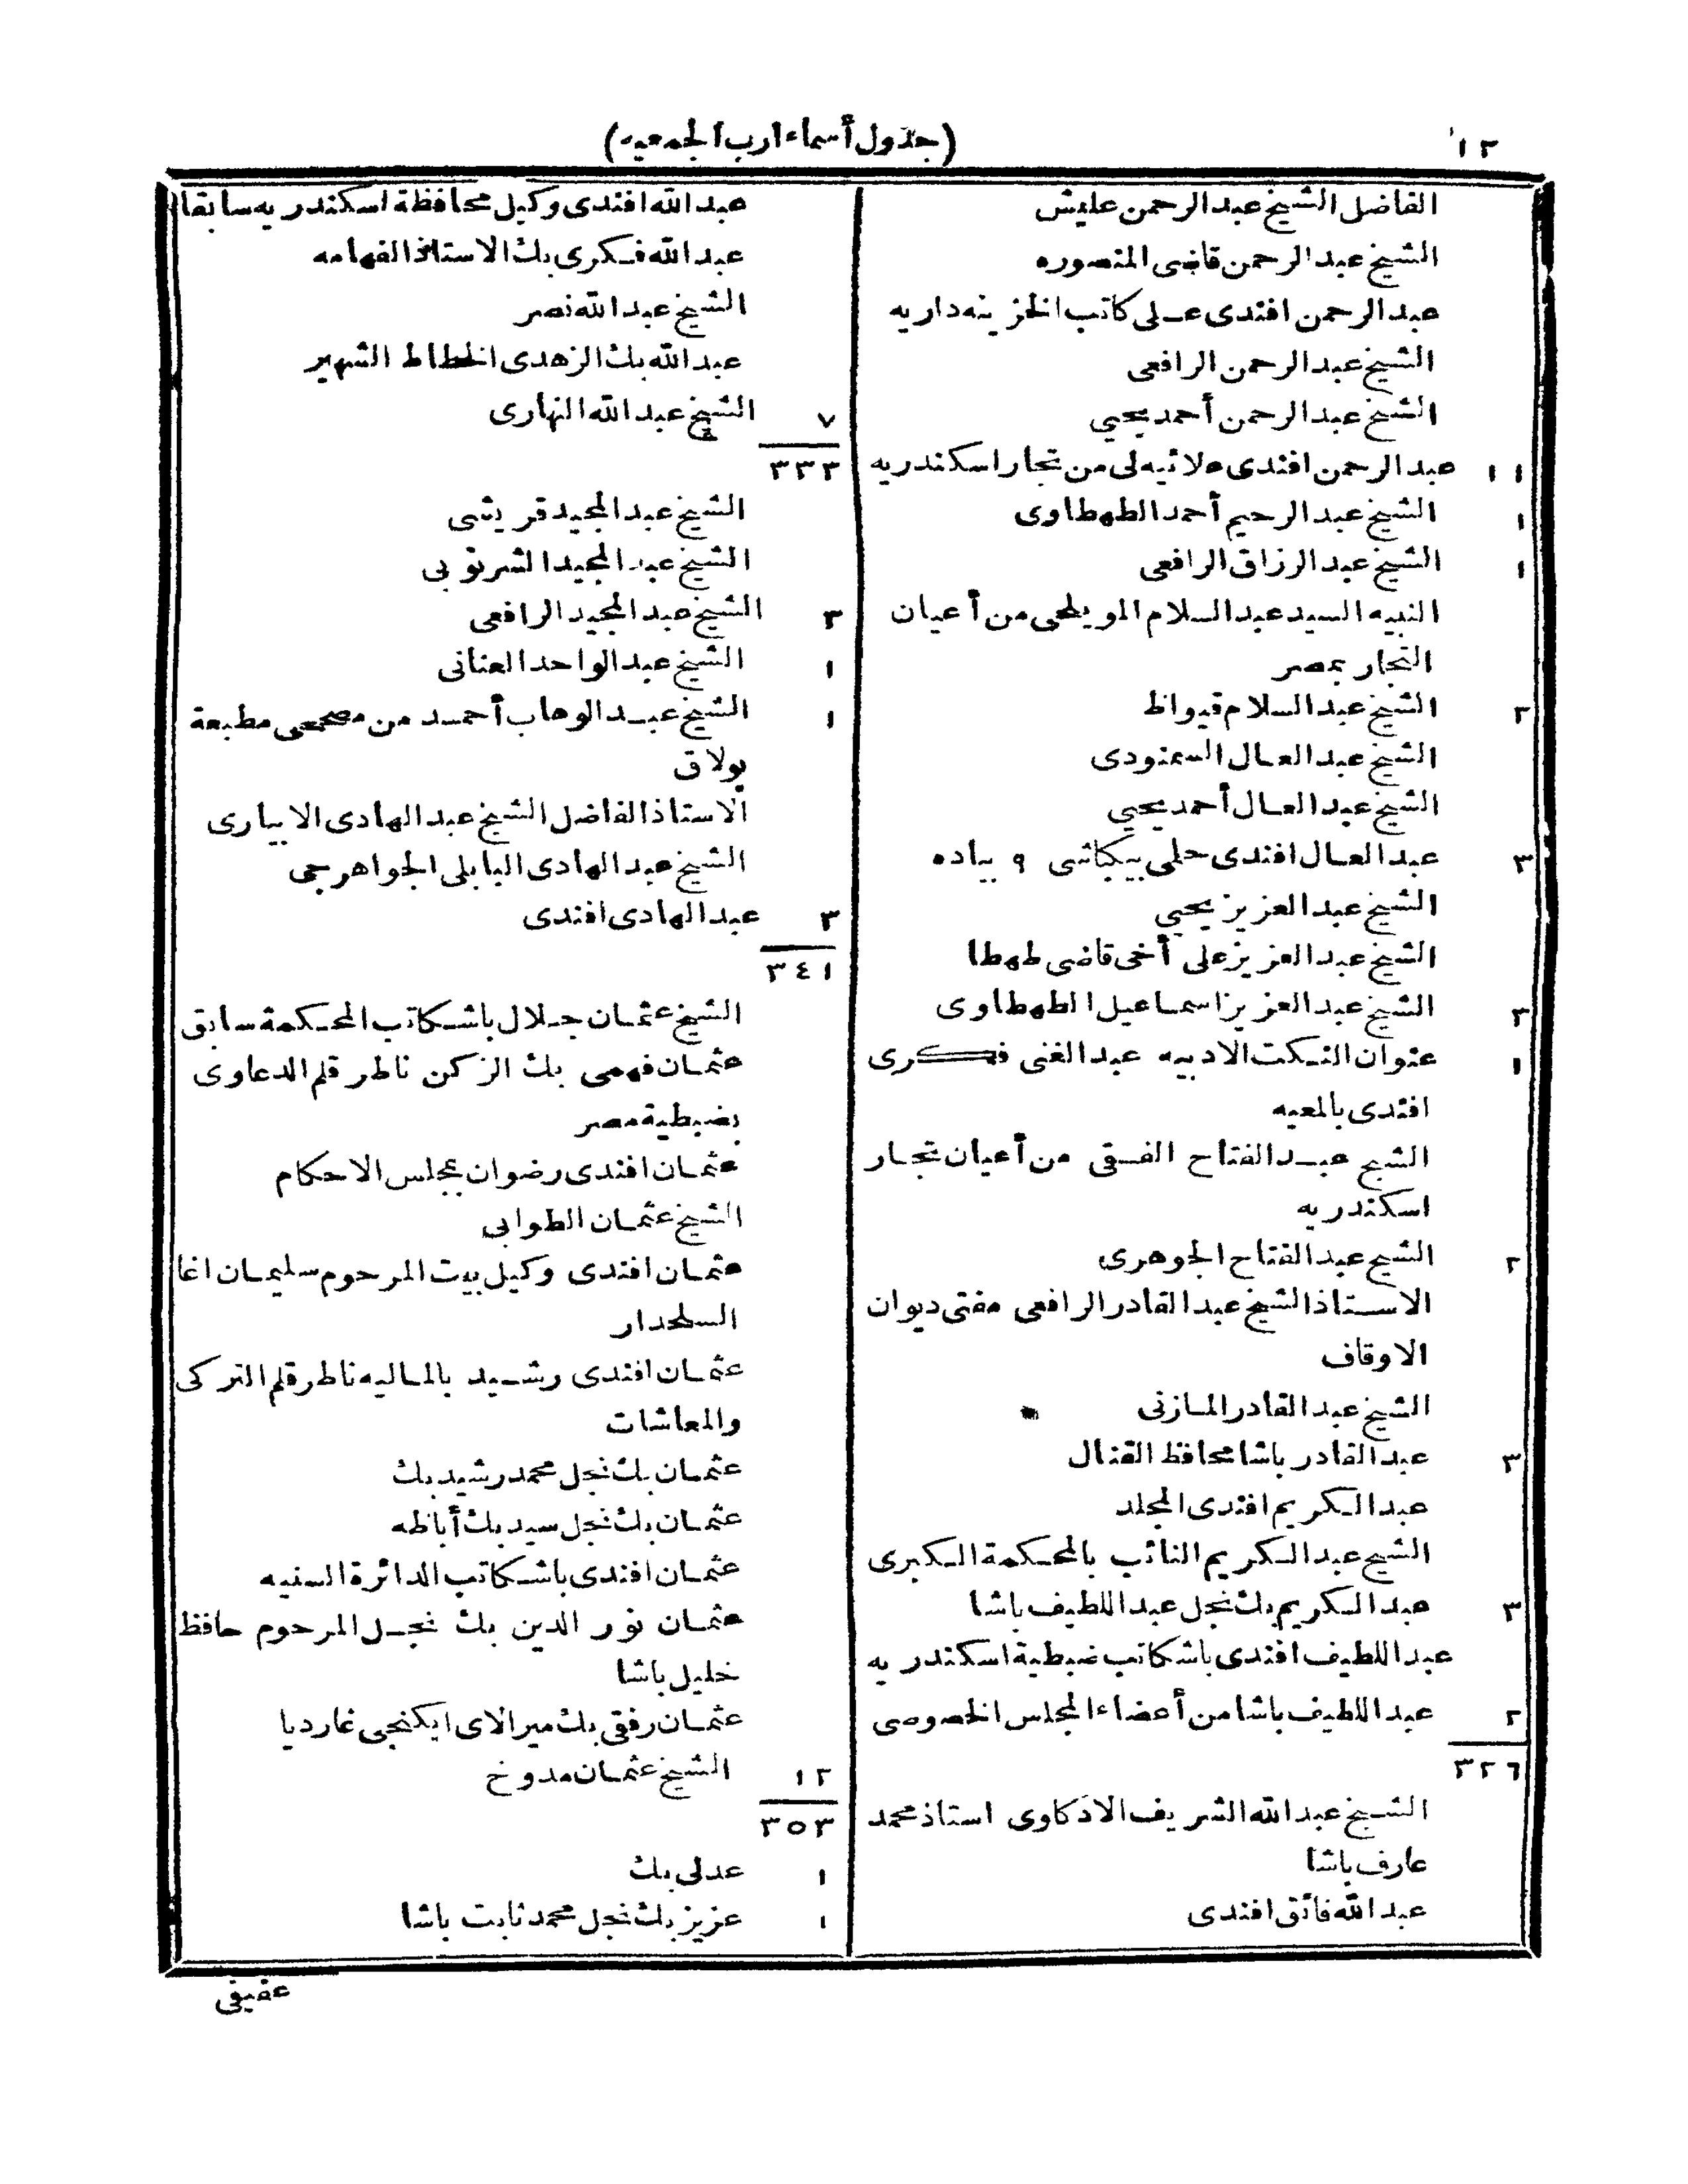 ١٢
(جدول أسماء ارب الجمعيه)
الفاضل الشيخ عبد الرحمن عليش
الشيخ عبد الرحمن قاضى المنصوره
عبد الرحمن افندى عـلى كاتب الخزينه داريه
الشيخ عبد الرحمن الرافعى
الشيخ عبد الرحمن أحمد يحيي
١١ عبد الرحمن افندى ملائيه لى من تجار اسكندريه
١ الشيخ عبد الرحيم أحمد الطهطاوى
١ الشيخ عبد الرزاق الرافعى
النبيه السيد عبد السلام المويلحى من أعيان
التجار بمصر
٢ الشيخ عبد السلام قيواظ
الشيخ عبد العال السمنودى
الشيخ عبد العال أحمد يحيي
٣ عبد العال افندى حلمى بيكباشى ٩ بياده
الشيخ عبد العزيز يحيي
الشيخ عبد العزيز على أخى قاضى طهطا
٣ الشيخ عبد العزيز اسماعيل الطهطاوى
١ عنوان النكت الادبيه عبد الغنى فكرى
افندى بالمعيه
الشيخ عبد الفتاح الفقى من أعيان تجار
اسكندريه
٢ الشيخ عبد الفتاح الجوهرى
الاستاذ الشيخ عبد القادر الرافعى مفتى ديوان
الاوقاف
الشيخ عبد القادر المازنى
٣ عبد القادر باشا محافظ القنال
عبد الكريم افندى المجلد
الشيخ عبد الكريم النائب بالمحكمة الكبرى
٣ عبد الكريم بك نجل عبد اللطيف باشا
عبد اللطيف افندى باشكاتب ضبطية اسكندريه
٢ عبد اللطيف باشا من أعضاء المجلس الخصوصى
٣٢٦
الشيخ عبد الله الشريف الادكاوى استاذ محمد
عارف باشا
عبد الله فائق افندى
عبد الله افندى وكيل محافظة اسكندريه سابقا
عبد الله فكرى بك الاستاذ الفهامه
الشيخ عبد الله نصر
عبد الله بك الزهدى الخطاط الشهير
٧ الشيخ عبد الله النهارى
٣٣٣
الشيخ عبد المجيد قريشى
الشيخ عبد المجيد الشرنوبى
٣ الشيخ عبد المجيد الرافعى
١ الشيخ عبد الواحد العنانى
١ الشيخ عبد الوهاب أحمد من مصححى مطبعة
بولاق
الاستاذ الفاضل الشيخ عبد الهادى الابيارى
الشيخ عبد الهادى البابلى الجواهرجى
٣ عبد الهادى افندى
٣٤١
الشيخ عثمان جلال باشكاتب المحكمة سابق
عثمان فهمى بك الزكن ناظر قلم الدعاوى
بضبطية مصر
عثمان افندى رضوان بمجلس الاحكام
الشيخ عثمان الطوابى
عثمان افندى وكيل بيت المرحوم سليمان اغا
السلحدار
عثمان افندى رشيد بالماليه ناظر قلم التركى
والمعاشات
عثمان بك نجل محمد رشيد بك
عثمان بك نجل سيد بك أباظه
عثمان افندى باشكاتب الدائرة السنيه
عثمان نور الدين بك نجل المرحوم حافظ
خليل باشا
عثمان رفقى بك ميرالاى ايكنجى غارديا
١٢ الشيخ عثمان مدوخ
٣٥٣
١ عدلى بك
١ عزيز بك نجل محمد ثابت باشا
عفيفى